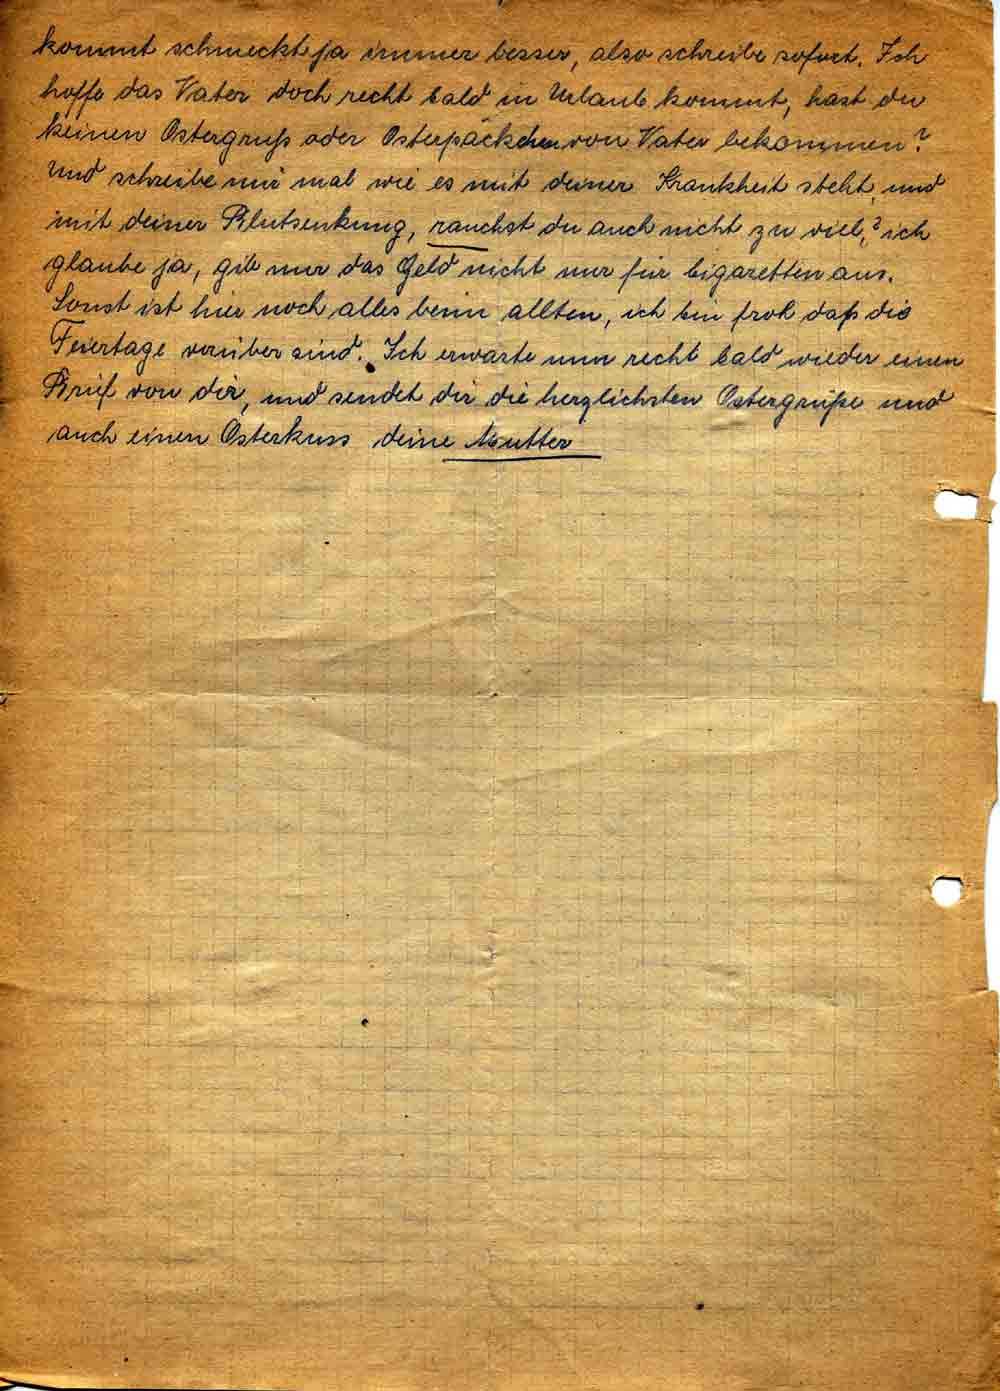 kommt schmeckt ja immer besser, also schreibe sofort. Ich
hoffe das Vater doch recht bald in Urlaub kommt, hast du
keinen Ostergruß oder Osterpäckchen von Vater bekommen?
Und schreibe mir mal wie es mit deiner Krankheit steht, und
mit deiner Blutsenkung, rauchst du auch nicht zu viel,? ich
glaube ja, gib nur das Geld nicht nur für Cigaretten aus.
Sonst ist hier noch alles beim allten, ich bin froh daß die
Feiertage vorüber sind. Ich erwarte nun recht bald wieder einen
Brief von dir, und sendet dir die herzlichsten Ostergrüße und
auch einen Osterkuss deine Mutter